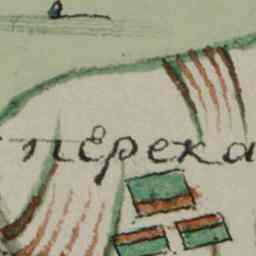 перека